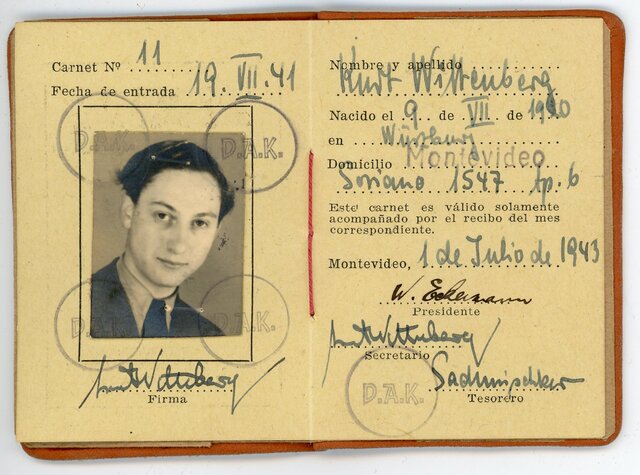 Carnet Nº 11
Fecha de entrada 19. VII. 41
D.A.K.
D.A.K.
D.A.K.
D.A.K.
Firma
Nombre y apellido
Kurt Wittenberg
Nacido el 9. de VII de 1920
en Würzburg
Domicilio Montevideo
Soriano 1547 ap. 6
Este carnet es válido solamente
acompañado por el recibo del mes
correspondiente.
Montevideo, 1 de Julio de 1943
W. Eckmann
Presidente
Secretario
D.A.K.
Tesorero